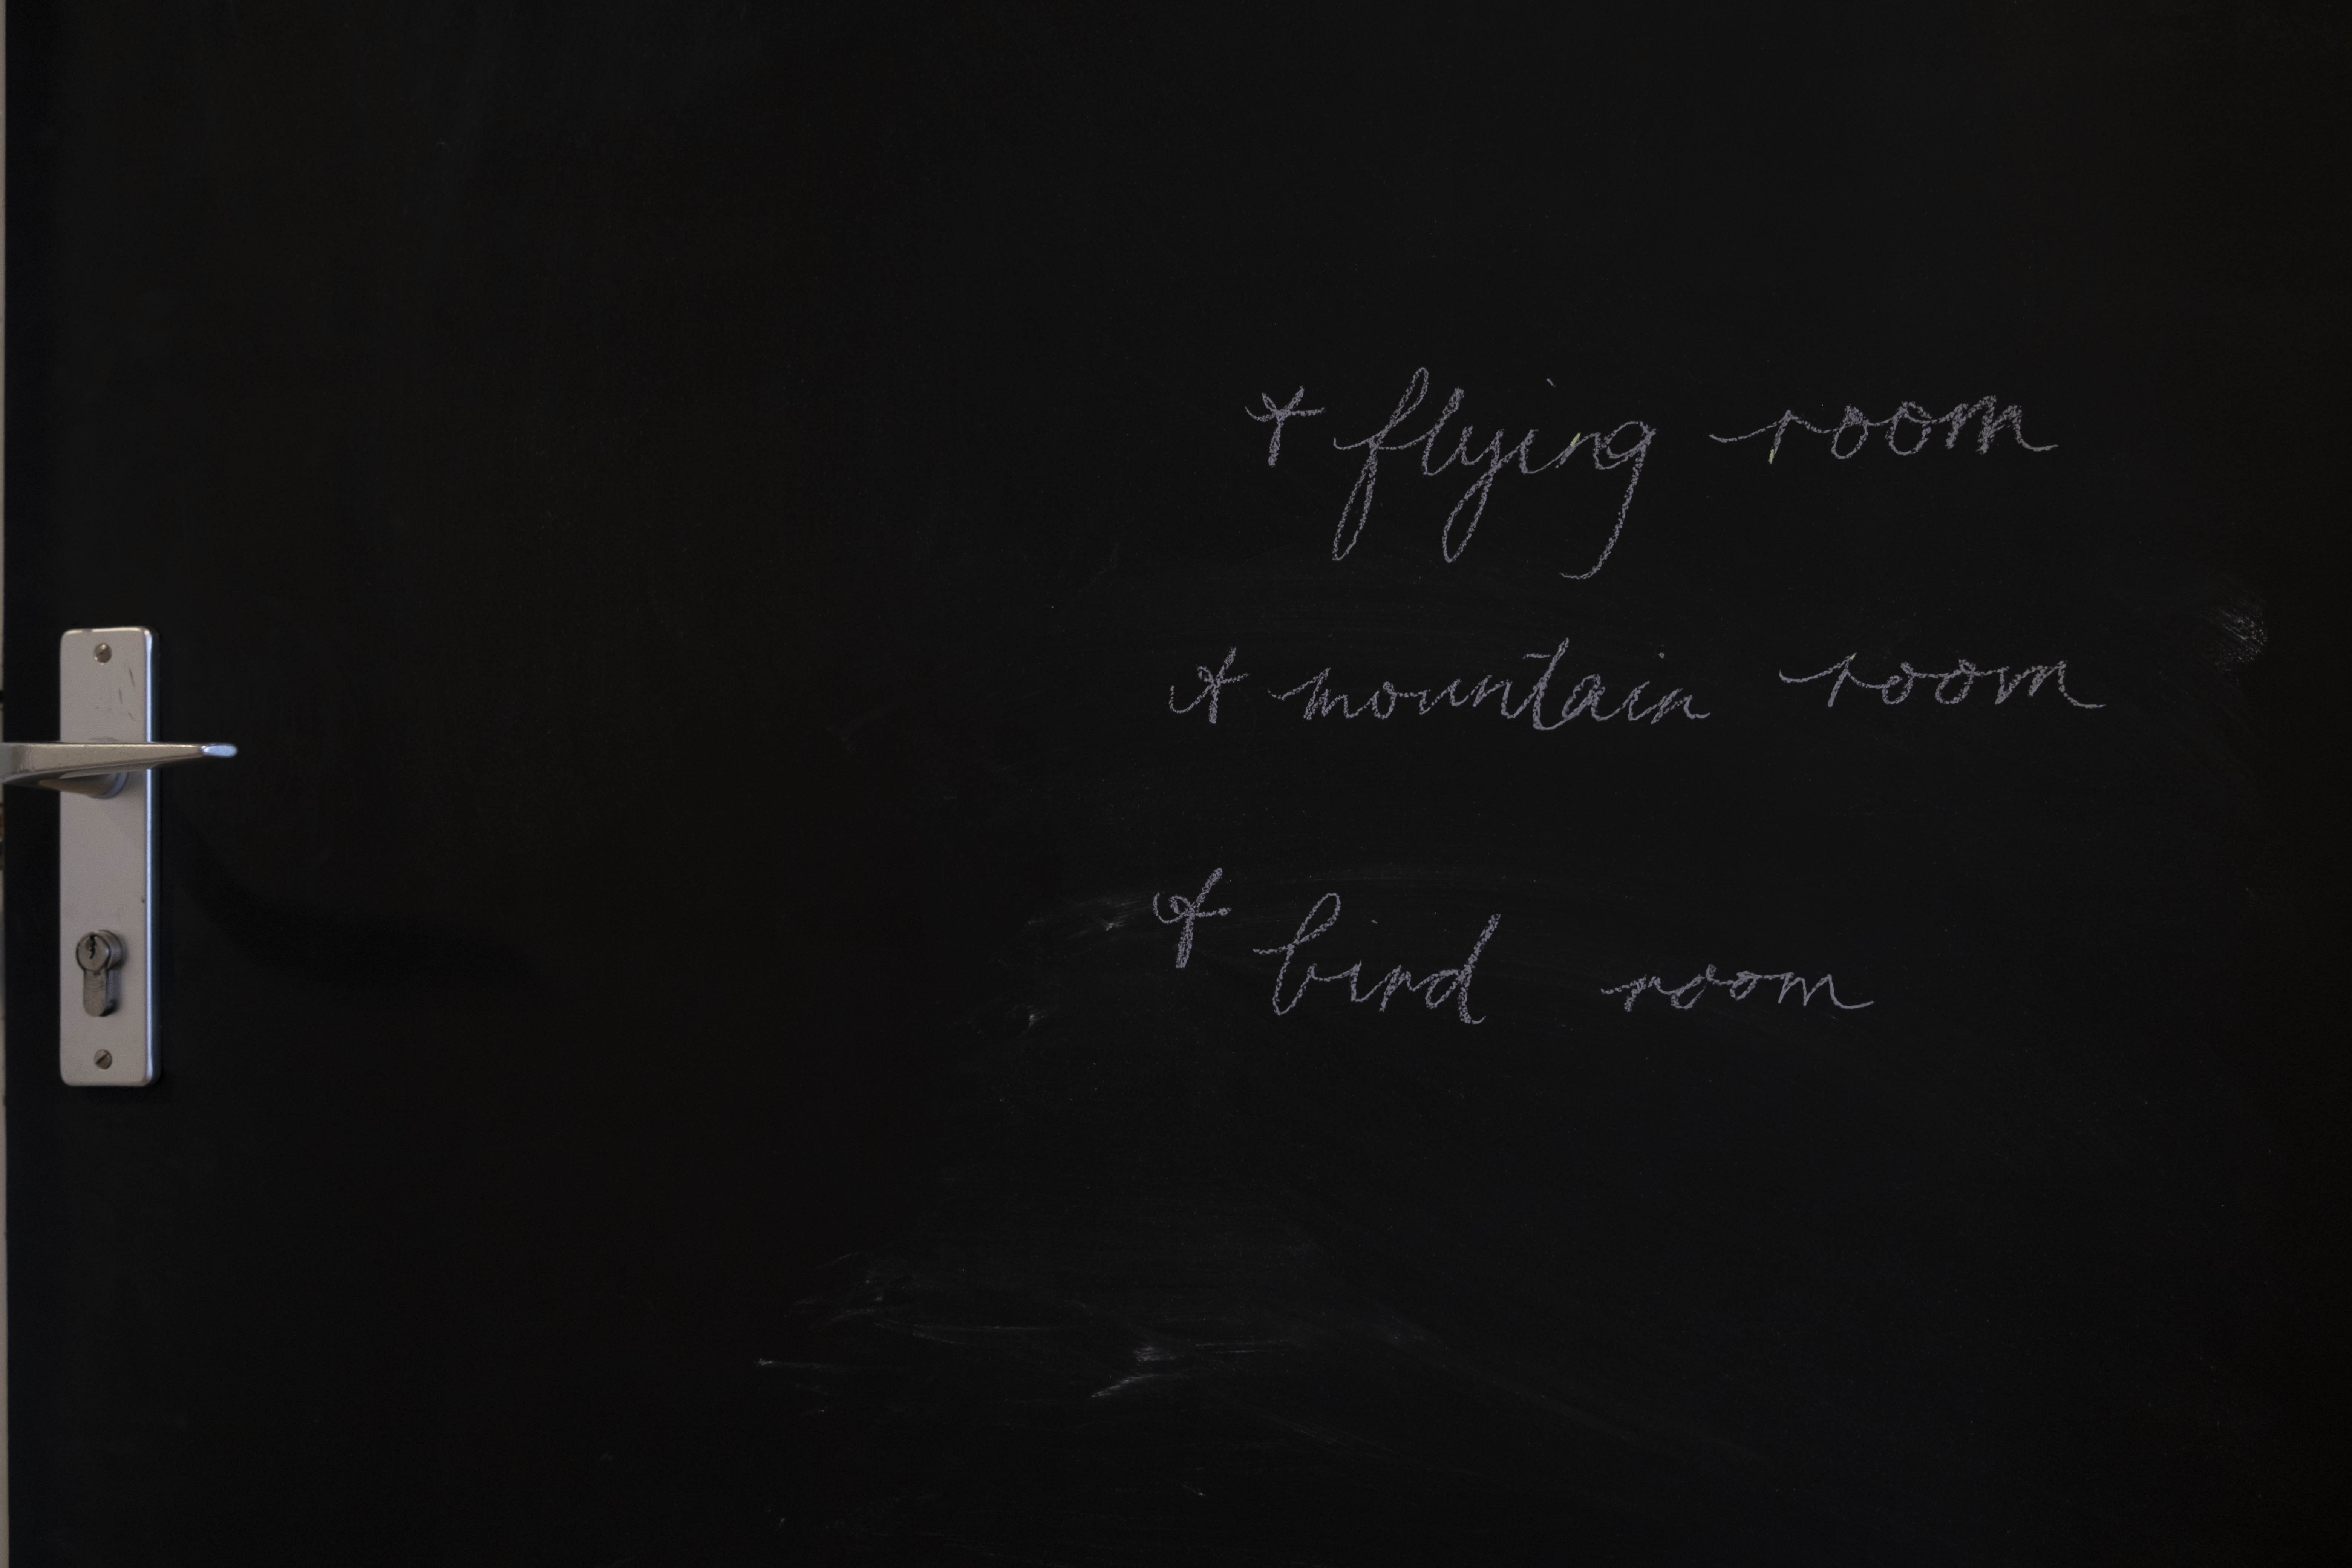 * flying room
* mountain room
* bird room